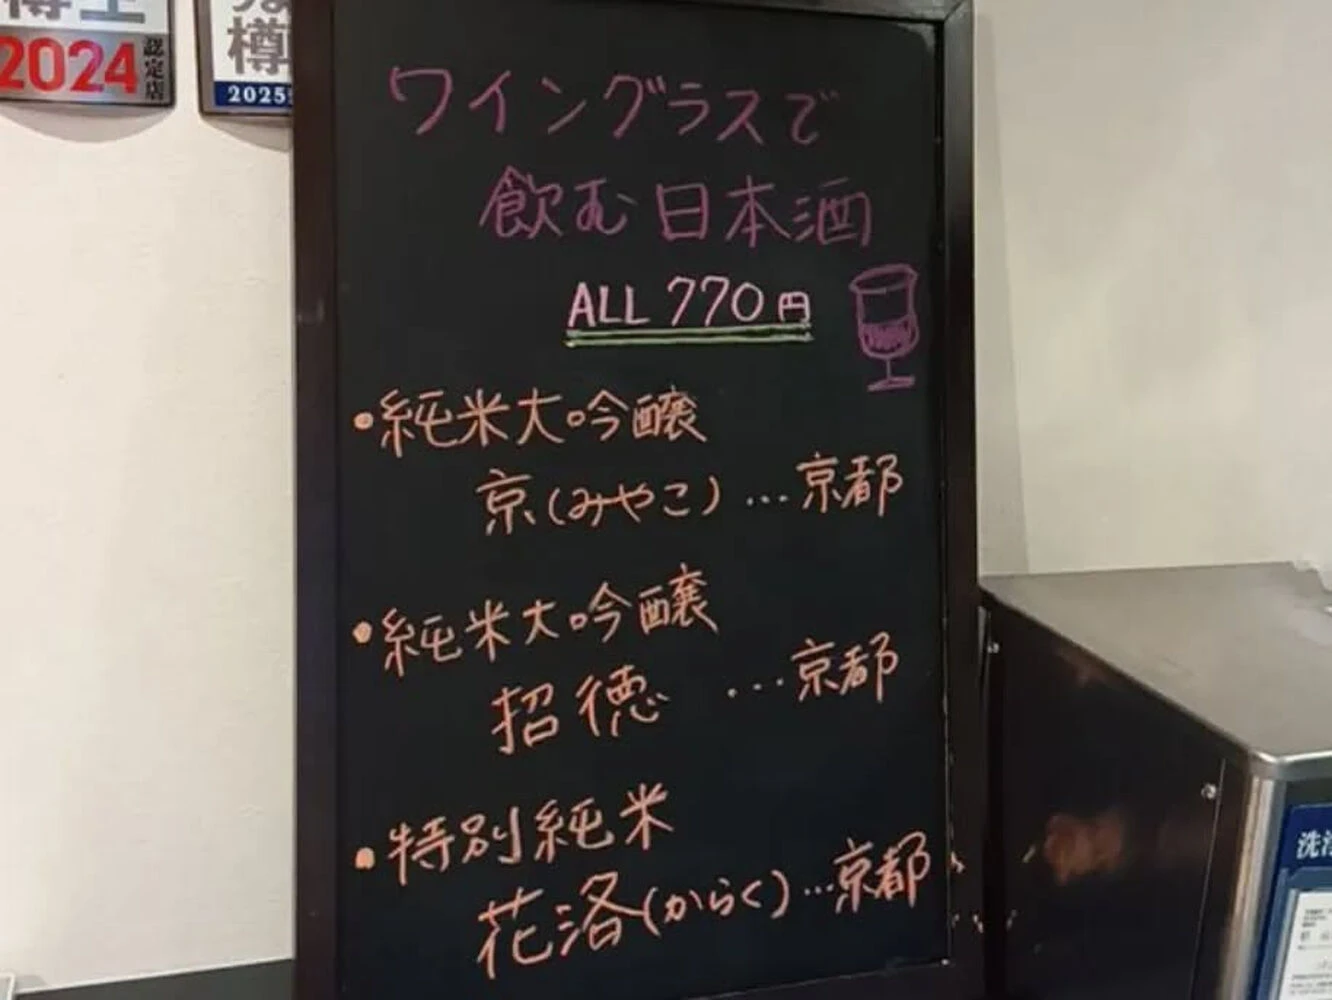 樽生
2024
認定店
樽
2025
ワイングラスで
飲む日本酒
ALL 770円
・純米大吟醸
京(みやこ)…京都
・純米大吟醸
招徳 …京都
・特別純米
花洛(からく)…京都